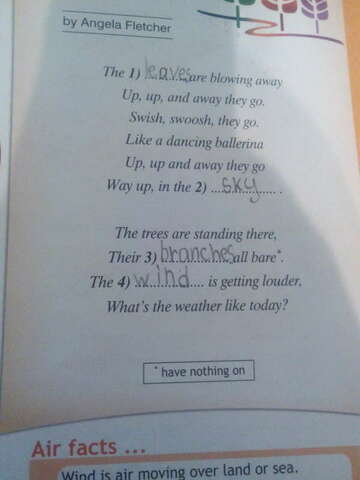 by Angela Fletcher
The 1) leaves are blowing away
Up, up, and away they go.
Swish, swoosh, they go.
Like a dancing ballerina
Up, up and away they go
Way up, in the 2) ...sky....... .
The trees are standing there,
Their 3) branches all bare*.
The 4) wind.... is getting louder,
What's the weather like today?
* have nothing on
Air facts ...
Wind is air moving over land or sea.